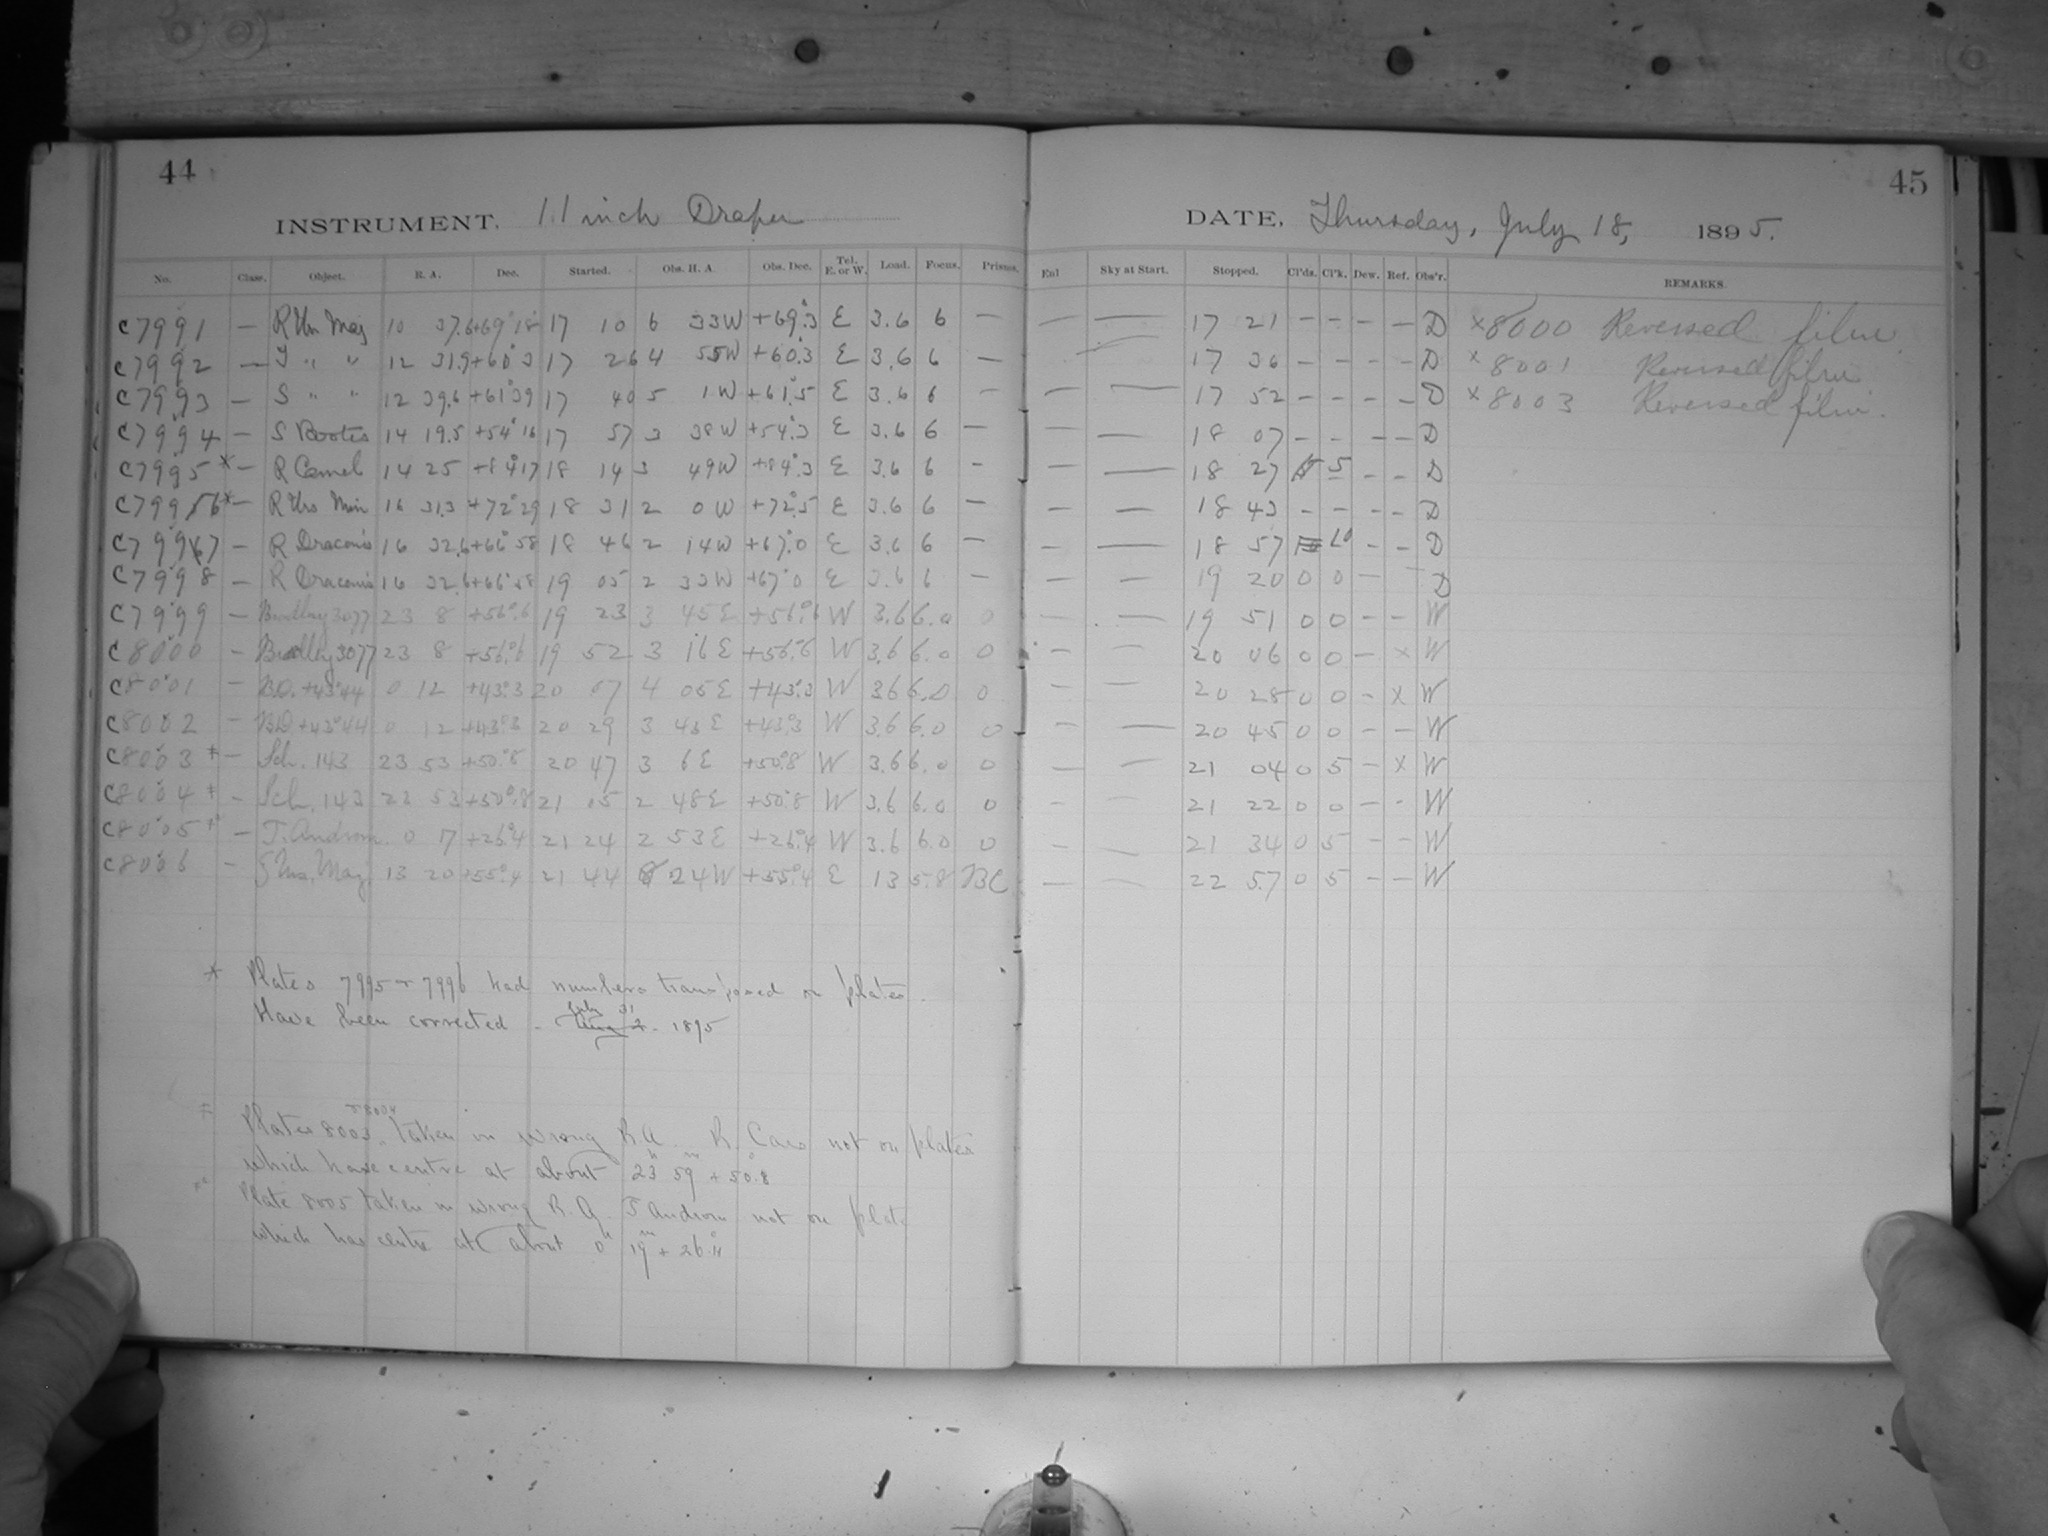 44
INSTRUMENT. 11 inch Draper
No. Class. Object. R. A. Dec. Started. Obs. H. A. Obs. Dec. Tel. E. or W. Load. Focus. Prisms.
C7991 — R Urs Maj 10 37.6 +69° 18 17 10 6 33W +69.°3 E 3.6 6 —
C7992 — T " " 12 31.9 +60° 3 17 26 4 55W +60.°3 E 3.6 6 —
C7993 — S " " 12 39.6 +61°39 17 40 5 1W +61.°5 E 3.6 6 —
C7994 — S Bootis 14 19.5 +54° 16 17 57 3 38W +54.°3 E 3.6 6 —
C7995* — R Camel 14 25 +84°17 18 14 3 49W +84.°3 E 3.6 6 -
C7996* — R Urs Min 16 31.3 +72°29 18 31 2 0W +72.°5 E 3.6 6 —
C7997 — R Draconis 16 32.6 +66° 58 18 46 2 14W +67.°0 E 3.6 6 —
C7998 — R Draconis 16 32.6 +66° 58 19 05 2 33W +67.°0 E 3.6 6 —
C7999 — Bradley 3077 23 8 +56.°6 19 23 3 45E +56.°6 W 3.6 6.0 0
C8000 — Bradley 3077 23 8 +56.°6 19 52 3 16E +56.°6 W 3.6 6.0 0
C8001 — B.D. +43°44 0 12 +43.°3 20 07 4 05E +43.°3 W 3.6 6.0 0
C8002 — B.D. +43°44 0 12 +43.°3 20 29 3 43E +43.°3 W 3.6 6.0 0
C8003 ‡ — Sch. 143 23 53 +50.°8 20 47 3 6E +50.°8 W 3.6 6.0 0
C8004 ‡ — Sch. 143 23 53 +50.°8 21 05 2 48E +50.°8 W 3.6 6.0 0
C8005 — T. Androm. 0 17 +26.°4 21 24 2 53E +26.°4 W 3.6 6.0 0
C8006 — ζ Urs. Maj. 13 20 +55.°4 21 44 8 24W +55.°4 E 13 5.8 BC
* Plates 7995 + 7996 had numbers transposed on plates.
Have been corrected - July 31 1895
Plates 8003 + 8004 taken in wrong R.A. R. Cass not on plates
which have centre at about 23h 59m + 50.°8
Plate 8005 taken in wrong R.A. T Androm not on plate
which has centre at about 0h 19m + 26.°4
45
DATE, Thursday, July 18, 1895.
Enl Sky at Start. Stopped. Cl'ds. Cl'k. Dew. Ref. Obs'r. REMARKS.
— — 17 21 – – – – D × 8000 Reversed film.
— 17 36 – – – – D × 8001 Reversed film
— — 17 52 – – – – D × 8003 Reversed film.
— — 18 07 – – – – D
— — 18 27 5 – – D
— — 18 43 – – – – D
— — 18 57 10 – – D
— — 19 20 0 0 – – D
— — 19 51 0 0 – – W
— — 20 06 0 0 – × W
— — 20 28 0 0 – × W
— — 20 45 0 0 – – W
— — 21 04 0 5 – × W
— — 21 22 0 0 – – W
— — 21 34 0 5 – – W
— — 22 57 0 5 – – W